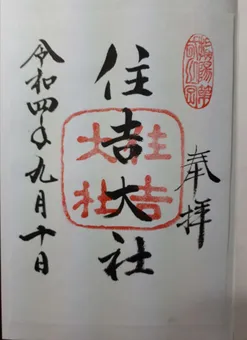 奉拝
住吉大社
住吉大社
令和四年九月十日